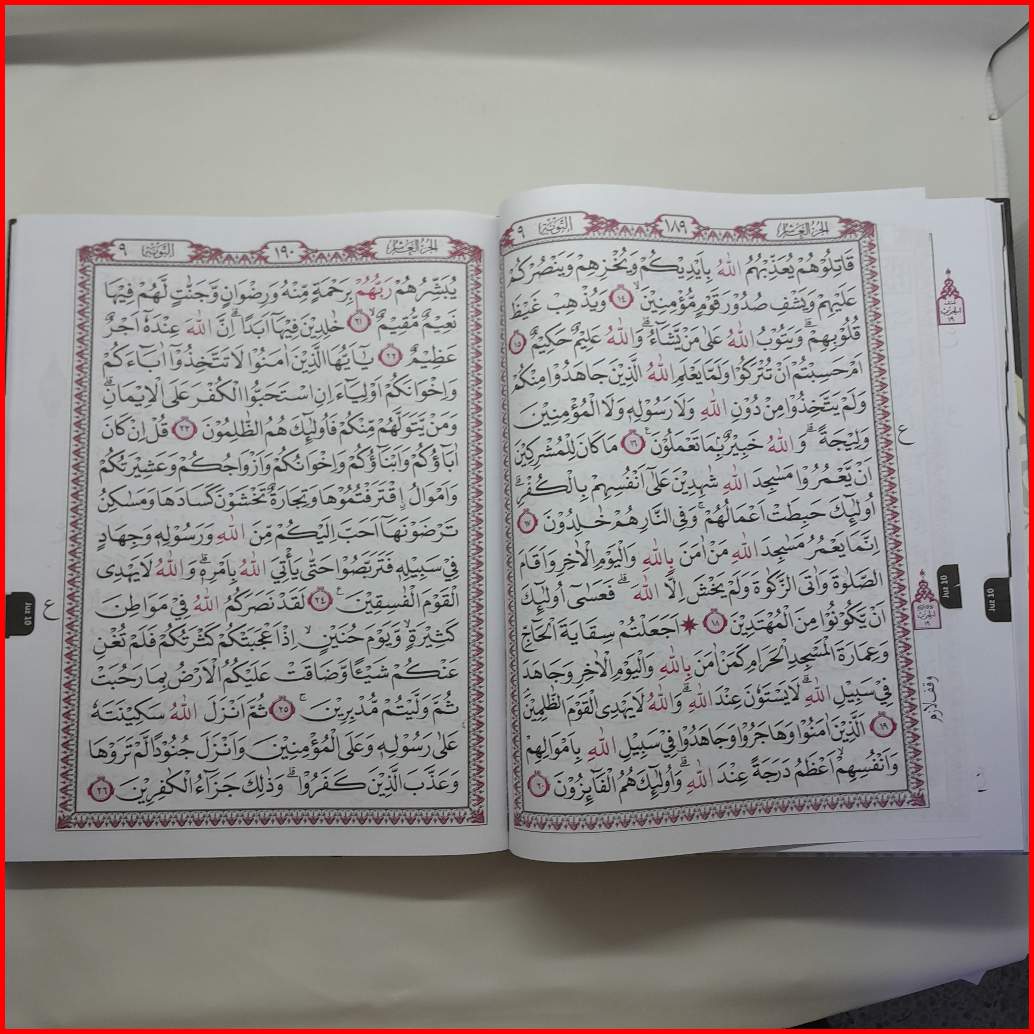 الجزء العاشر
١٨٩
التوبة
٩
قَاتِلُوهُمْ يُعَذِّبْهُمُ اللّٰهُ بِاَيْدِيكُمْ وَيُخْزِهِمْ وَيَنْصُرْكُمْ
عَلَيْهِمْ وَيَشْفِ صُدُورَ قَوْمٍ مُؤْمِنِينَۙ ﴿١٤﴾ وَيُذْهِبْ غَيْظَ
قُلُوبِهِمْۜ وَيَتُوبُ اللّٰهُ عَلٰى مَنْ يَشَٓاءُۜ وَاللّٰهُ عَلِيمٌ حَكِيمٌ ﴿١٥﴾
اَمْ حَسِبْتُمْ اَنْ تُتْرَكُوا وَلَمَّا يَعْلَمِ اللّٰهُ الَّذِينَ جَاهَدُوا مِنْكُمْ
وَلَمْ يَتَّخِذُوا مِنْ دُونِ اللّٰهِ وَلَا رَسُولِهِ وَلَا الْمُؤْمِنِينَ
وَلِيجَةًۜ وَاللّٰهُ خَبِيرٌ بِمَا تَعْمَلُونَ۟ ﴿١٦﴾ مَا كَانَ لِلْمُشْرِكِينَ
اَنْ يَعْمُرُوا مَسَاجِدَ اللّٰهِ شَاهِدِينَ عَلٰٓى اَنْفُسِهِمْ بِالْكُفْرِۜ
اُو۬لٰٓئِكَ حَبِطَتْ اَعْمَالُهُمْۚ وَفِي النَّارِ هُمْ خَالِدُونَ ﴿١٧﴾
اِنَّمَا يَعْمُرُ مَسَاجِدَ اللّٰهِ مَنْ اٰمَنَ بِاللّٰهِ وَالْيَوْمِ الْاٰخِرِ وَاَقَامَ
الصَّلٰوةَ وَاٰتَى الزَّكٰوةَ وَلَمْ يَخْشَ اِلَّا اللّٰهَ۠ فَعَسٰٓى اُو۬لٰٓئِكَ
اَنْ يَكُونُوا مِنَ الْمُهْتَدِينَ ﴿١٨﴾ اَجَعَلْتُمْ سِقَايَةَ الْحَٓاجِّ
وَعِمَارَةَ الْمَسْجِدِ الْحَرَامِ كَمَنْ اٰمَنَ بِاللّٰهِ وَالْيَوْمِ الْاٰخِرِ وَجَاهَدَ
فِي سَبِيلِ اللّٰهِۜ لَا يَسْتَوُ۫نَ عِنْدَ اللّٰهِۜ وَاللّٰهُ لَا يَهْدِي الْقَوْمَ الظَّالِمِينَۢ
﴿١٩﴾ اَلَّذِينَ اٰمَنُوا وَهَاجَرُوا وَجَاهَدُوا فِي سَبِيلِ اللّٰهِ بِاَمْوَالِهِمْ
وَاَنْفُسِهِمْۙ اَعْظَمُ دَرَجَةً عِنْدَ اللّٰهِۜ وَاُو۬لٰٓئِكَ هُمُ الْفَٓائِزُونَ ﴿٢٠﴾
ع
وقف لازم
Juz 10
Juz 10
الجزء العاشر
١٩٠
التوبة
٩
يُبَشِّرُهُمْ رَبُّهُمْ بِرَحْمَةٍ مِنْهُ وَرِضْوَانٍ وَجَنَّاتٍ لَهُمْ فِيهَا
نَعِيمٌ مُقِيمٌۙ ﴿٢١﴾ خَالِدِينَ فِيهَٓا اَبَدًاۜ اِنَّ اللّٰهَ عِنْدَهُٓ اَجْرٌ
عَظِيمٌ ﴿٢٢﴾ يَٓا اَيُّهَا الَّذِينَ اٰمَنُوا لَا تَتَّخِذُٓوا اٰبَٓاءَكُمْ
وَاِخْوَانَكُمْ اَوْلِيَٓاءَ اِنِ اسْتَحَبُّوا الْكُفْرَ عَلَى الْا۪يمَانِۜ
وَمَنْ يَتَوَلَّهُمْ مِنْكُمْ فَاُو۬لٰٓئِكَ هُمُ الظَّالِمُونَ ﴿٢٣﴾ قُلْ اِنْ كَانَ
اٰبَٓاؤُ۬كُمْ وَاَبْنَٓاؤُ۬كُمْ وَاِخْوَانُكُمْ وَاَزْوَاجُكُمْ وَعَشِيرَتُكُمْ
وَاَمْوَالٌ اقْتَرَفْتُمُوهَا وَتِجَارَةٌ تَخْشَوْنَ كَسَادَهَا وَمَسَاكِنُ
تَرْضَوْنَهَٓا اَحَبَّ اِلَيْكُمْ مِنَ اللّٰهِ وَرَسُولِهِ وَجِهَادٍ
فِي سَبِيلِهِ فَتَرَبَّصُوا حَتّٰى يَأْتِيَ اللّٰهُ بِاَمْرِهِۜ وَاللّٰهُ لَا يَهْدِي
الْقَوْمَ الْفَاسِقِينَ۟ ﴿٢٤﴾ لَقَدْ نَصَرَكُمُ اللّٰهُ فِي مَوَاطِنَ
كَثِيرَةٍۙ وَيَوْمَ حُنَيْنٍۙ اِذْ اَعْجَبَتْكُمْ كَثْرَتُكُمْ فَلَمْ تُغْنِ
عَنْكُمْ شَيْـًٔا وَضَاقَتْ عَلَيْكُمُ الْاَرْضُ بِمَا رَحُبَتْ
ثُمَّ وَلَّيْتُمْ مُدْبِرِينَۚ ﴿٢٥﴾ ثُمَّ اَنْزَلَ اللّٰهُ سَكِينَتَهُ
عَلٰى رَسُولِهِ وَعَلَى الْمُؤْمِنِينَ وَاَنْزَلَ جُنُودًا لَمْ تَرَوْهَا
وَعَذَّبَ الَّذِينَ كَفَرُواۜ وَذٰلِكَ جَزَٓاءُ الْكَافِرِينَ ﴿٢٦﴾
ع
Juz 10